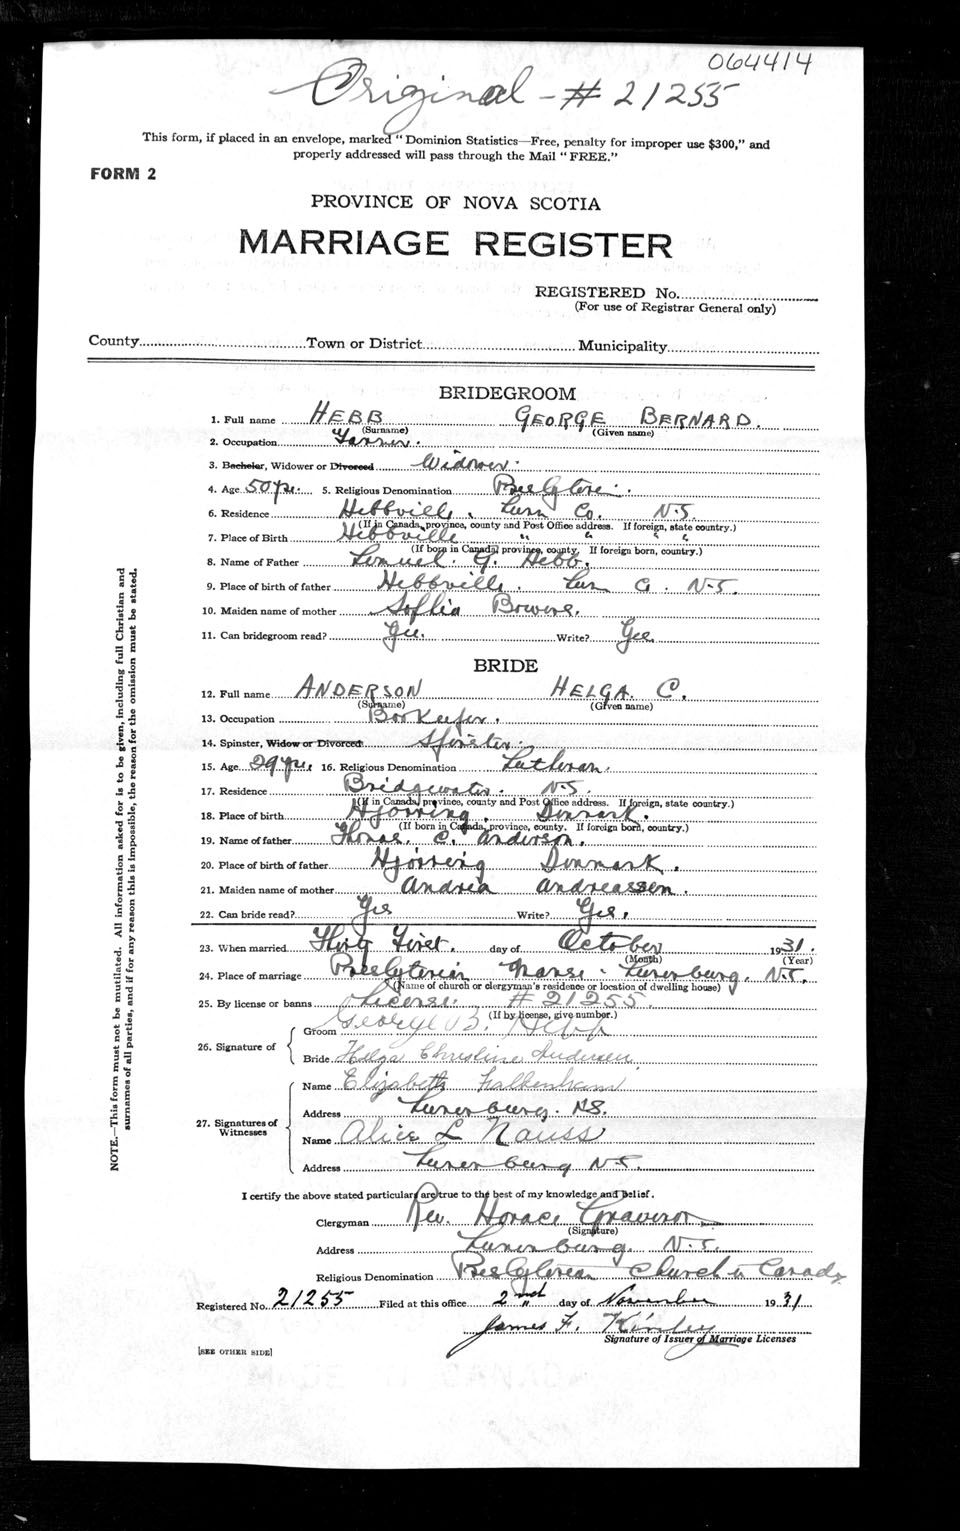 064414
Original - # 21255
This form, if placed in an envelope, marked "Dominion Statistics—Free, penalty for improper use $300," and
properly addressed will pass through the Mail "FREE."
FORM 2
PROVINCE OF NOVA SCOTIA
MARRIAGE REGISTER
REGISTERED No.
(For use of Registrar General only)
County Town or District Municipality
BRIDEGROOM
1. Full name HEBB GEORGE BERNARD.
(Surname) (Given name)
2. Occupation
3. Bachelor, Widower or Divorced Widower.
4. Age 50 yrs. 5. Religious Denomination
6. Residence Hebbville, Lun Co. N.S.
(If in Canada, province, county and Post Office address. If foreign, state country.)
7. Place of Birth Hebbville " " " "
(If born in Canada, province, county. If foreign born, country.)
8. Name of Father Lemuel. G. Hebb.
9. Place of birth of father Hebbville. Lun Co. N.S.
10. Maiden name of mother Sophia
11. Can bridegroom read? Yes. Write? Yes
BRIDE
12. Full name ANDERSON HELGA. C.
(Surname) (Given name)
13. Occupation Bookeeper.
14. Spinster, Widow or Divorced Spinster.
15. Age 29 yrs. 16. Religious Denomination Lutheran.
17. Residence Bridgewater. N.S.
(If in Canada, province, county and Post Office address. If foreign, state country.)
18. Place of birth Hjorring, Denmark.
(If born in Canada, province, county. If foreign born, country.)
19. Name of father C. Anderson.
20. Place of birth of father Hjorring Denmark.
21. Maiden name of mother Andrea Andreassen.
22. Can bride read? Yes Write? Yes.
23. When married Thirty First. day of October 1931.
(Month) (Year)
24. Place of marriage Presbyterian Manse - Lunenburg. N.S.
(Name of church or clergyman's residence or location of dwelling house)
25. By license or banns License. # 21255.
(If by license, give number.)
26. Signature of
Groom George B. Hebb
Bride Helga Christine Andersen
27. Signatures of Witnesses
Name Elizabeth Falkenham
Address Lunenburg. NS.
Name Alice L Nauss
Address Lunenburg N.S.
I certify the above stated particulars are true to the best of my knowledge and belief.
Clergyman Rev. Horace
(Signature)
Address Lunenburg. N.S.
Religious Denomination Presbyterian Church in Canada
Registered No. 21255 Filed at this office 2nd day of November 1931
James F. Kinley
Signature of Issuer of Marriage Licenses
[SEE OTHER SIDE]
NOTE.—This form must not be mutilated. All information asked for is to be given, including full Christian and
surnames of all parties, and if for any reason this is impossible, the reason for the omission must be stated.